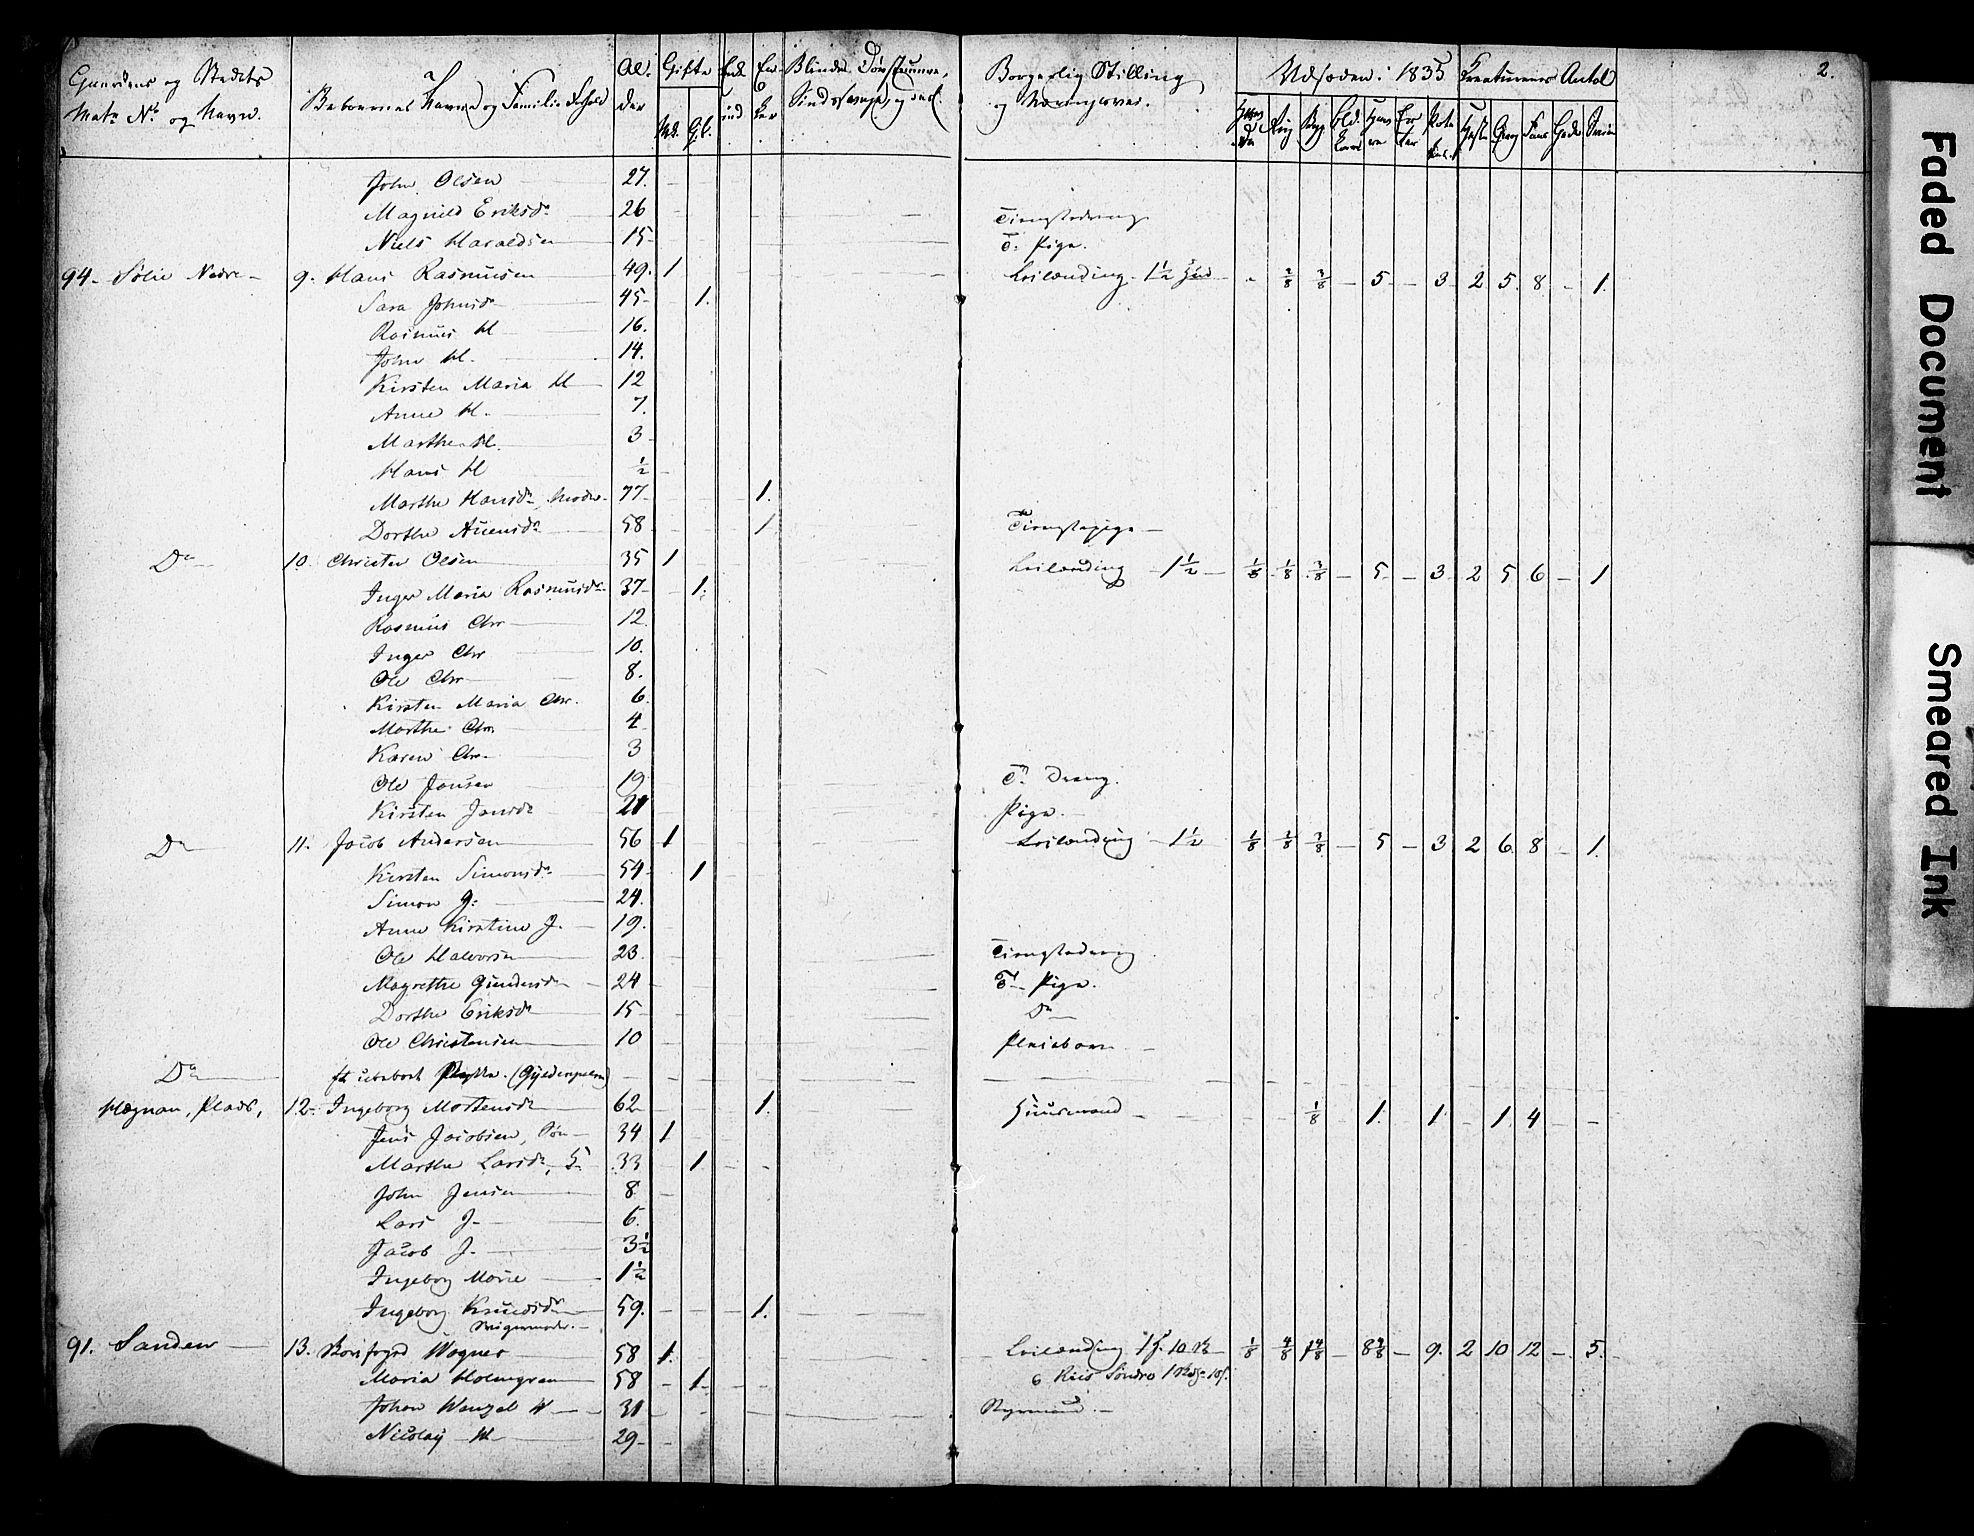 2.
Gaardens og Stedets
Matr. No. og Navn.
Beboernes Navne og Familie Forhold
Al-
der
Gifte
Md. Gl.
Borgerlig Stilling
og Næringsvei.
Udsæden i 1835
Creaturenes Antal
John Olsen 27.
Magnild Eriksdr 26 Tienestedreng
Niels Haraldsen 15 T. Pige.
94. Solie Nedre 9. Hans Rasmusen 49. 1 Leilænding 1½ Hud - ⅛ ⅜ - 5 - 3 2 5 8 - 1
Sara Johnsdr 45 1.
Rasmus H 16.
John H. 14.
Kirsten Maria H 12
Anne H. 7.
Marthe H. 3
Hans H ½
Marthe Hansdr, Moder 77 1.
Dorthe Auensdr 58 1 Tienstepige
Do 10. Christen Olsen 35 1 Leilænding 1½ ⅛ ⅛ ⅜ - 5 - 3 2 5 6 - 1
Inger Maria Rasmusdr 37 1.
Rasmus Chr 12
Inger Chr 10.
Ole Chr 8.
Kirsten Maria Chr. 6
Marthe Chr. 4
Karen Chr. 3
Ole Jansen 19 T. Dreng.
Kirsten Jansdr 21 Pige.
Do 11. Jacob Andersen 56 1 Leilænding 1½ ⅛ ⅛ ⅜ - 5 - 3 2 6 8 - 1.
Kirsten Simonsdr 54 1
Simon J. 24.
Anne Kirstine J. 19.
Ole Halvorsen 23 Tienestedreng
Magrethe Gundersdr 24 T. Pige.
Dorthe Eriksdr 15 Do
Ole Christensen 10 Pleiebarn
Do et ubeboet Stykke. (Gyldenpelsen)
Hegnan, Plads, 12. Ingeborg Mortensdr 62 1. Huusmand ⅛ 1. 1. - 1. 4 - -
Jens Jacobsen, Søn 34 1
Marthe Larsdr, 33 1
John Jensen 8
Lars J. 6.
Jacob J. 3½
Ingeborg Marie 1½
Ingeborg Knudsdr 59. 1.
Svigermoder.
91. Sanden 13. Wagner 58 1. Leilænding ⅛ 9. 2 10 12 - 5.
Maria Holmgren 58 1.
Johan Wenzel W 31 Styrmand.
Nicolay W 29
Faded Document
Smeared Ink